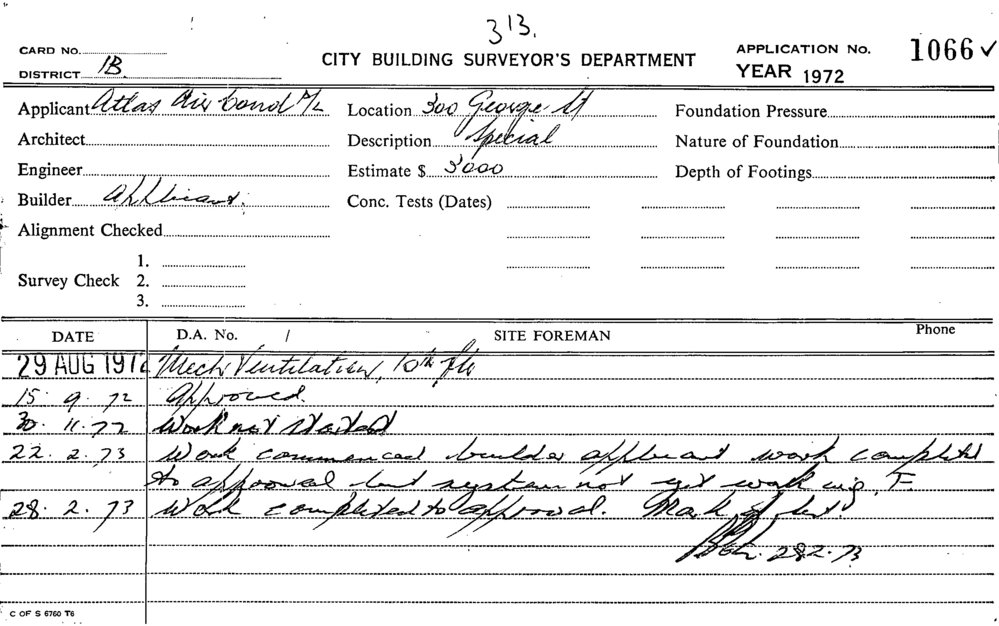 313.
CARD No.
DISTRICT 1B
CITY BUILDING SURVEYOR'S DEPARTMENT
APPLICATION No. 1066 ✓
YEAR 1972
Applicant Atlas Air Cond P/L Location 300 George St Foundation Pressure
Architect Description Special Nature of Foundation
Engineer Estimate $ 3000 Depth of Footings
Builder Applicant. Conc. Tests (Dates)
Alignment Checked
1.
Survey Check 2.
3.
DATE D.A. No. / SITE FOREMAN Phone
29 AUG 1972 Mech Ventilation, 10th Flr
15. 9. 72 Approved.
30. 11. 72 Work not started
22. 2. 73 Work commenced builder applicant work complete
to approval but system not yet working, F
28. 2. 73 Work completed to approval. Mark
28.2.73
C OF S 6760 T6